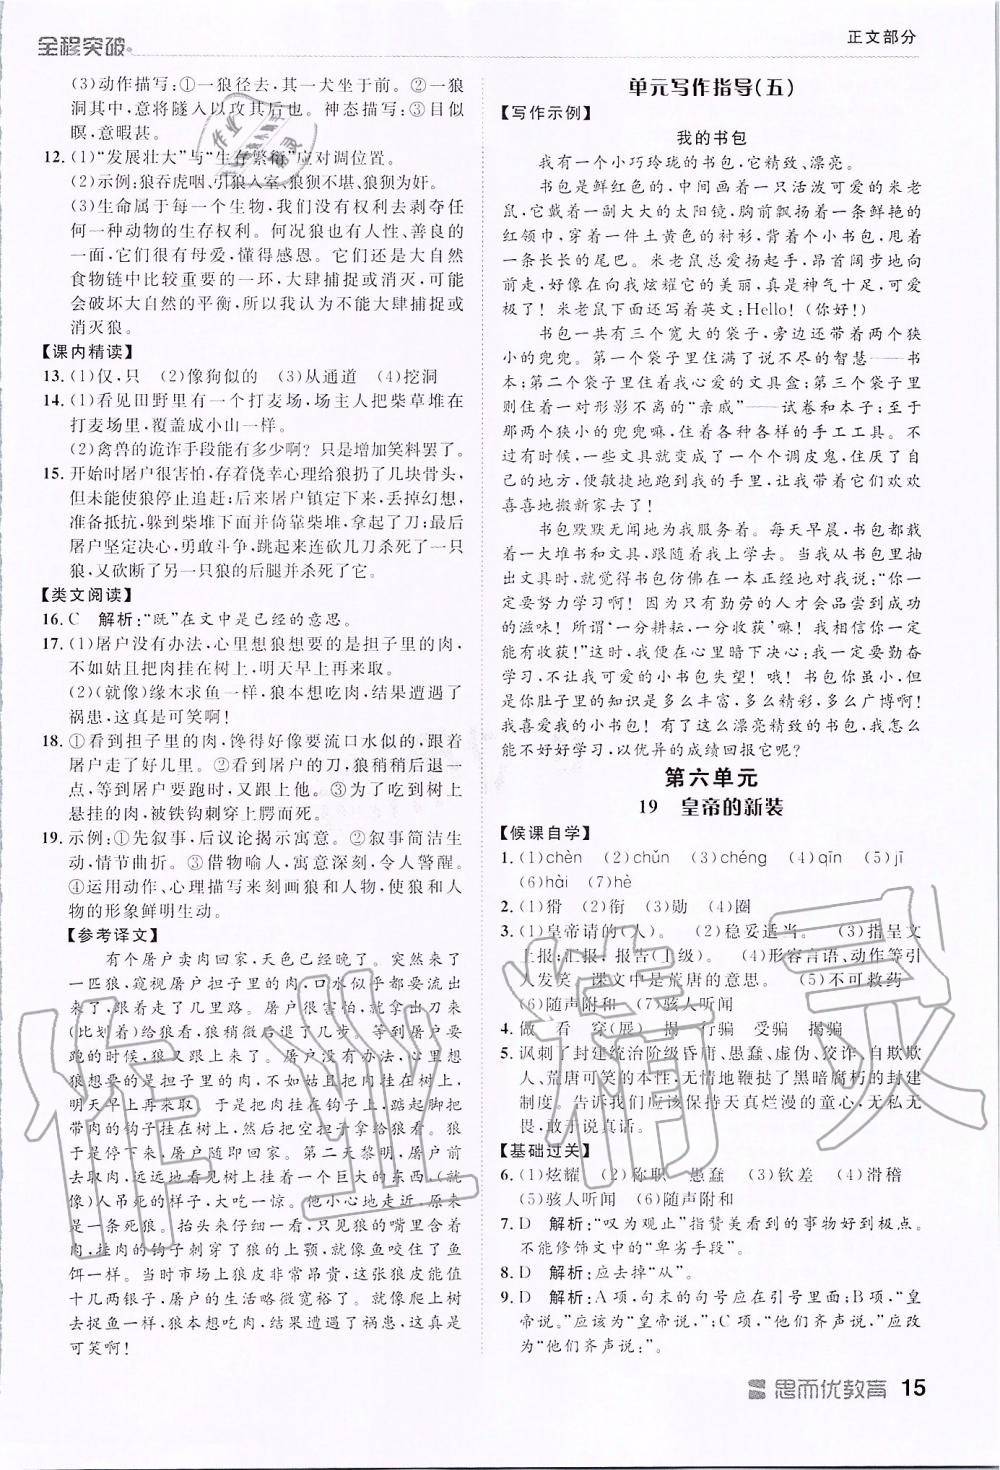 全程突破
正文部分
(3)动作描写:①一狼径去,其一犬坐于前。②一狼
洞其中,意将隧入以攻其后也。神态描写:③目似
瞑,意暇甚。
12. (1)“发展壮大”与“生存繁衍”应对调位置。
(2)示例:狼吞虎咽、引狼入室、狼狈不堪、狼狈为奸
(3)生命属于每一个生物,我们没有权利去剥夺任
何一种动物的生存权利。何况狼也有人性、善良的
一面,它们很有母爱,懂得感恩。它们还是大自然
食物链中比较重要的一环,大肆捕捉或消灭,可能
会破坏大自然的平衡,所以我认为不能大肆捕捉或
消灭狼。
【课内精读】
13. (1)仅,只 (2)像狗似的 (3)从通道 (4)挖洞
14. (1)看见田野里有一个打麦场,场主人把柴草堆在
打麦场里,覆盖成小山一样。
(2)禽兽的诡诈手段能有多少啊?只是增加笑料罢了。
15. 开始时屠户很害怕,存着侥幸心理给狼扔了几块骨头,
但未能使狼停止追赶;后来屠户镇定下来,丢掉幻想,
准备抵抗,躲到柴堆下面并倚靠柴堆,拿起了刀;最后
屠户坚定决心,勇敢斗争,跳起来连砍几刀杀死了一只
狼,又砍断了另一只狼的后腿并杀死了它。
【类文阅读】
16. C 解析:“既”在文中是已经的意思。
17. (1)屠户没有办法,心里想狼想要的是担子里的肉,
不如姑且把肉挂在树上,明天早上再来取。
(2)(就像)缘木求鱼一样,狼本想吃肉,结果遭遇了
祸患,这真是可笑啊!
18. ①看到担子里的肉,馋得好像要流口水似的,跟着
走了几里。②屠户的刀,狼稍稍后退了几步,
看到屠户走时,又跟着走。③为了吃到树上
悬挂的肉,被铁钩刺穿上腭而死。
19. 示例:①先叙事,后议论揭示寓意。②叙事简洁生
动,情节曲折。③借物喻人,寓意深刻,令人警醒。
④运用动作、心理描写来刻画狼和人物,使狼和人
物的形象鲜明生动。
【参考译文】
有个屠户卖肉回家,天色已经晚了。突然来了
一匹狼,窥视屠户担子里的肉,口水似乎都要流出
来了,跟着走了几里路。屠户很害怕,就拿出刀来
(比划着)给狼看,狼稍微后退了几步。等到屠户要
跑的时候,狼又跟着他走。屠户没有办法,心里想
狼想要的是担子里的肉,不如姑且把肉挂在树上,
明天早上再来取。于是把肉挂在钩子上,踮起脚把
带肉的钩子挂在树上,然后把空担子拿给狼看了看。
屠户随即回家。第二天黎明,屠户
去取肉,远远地看见树上挂着一个巨大的东西,就像
(一个)人吊死的样子,大吃一惊。他小心地走近,原来
是一条死狼。抬头仔细一看,只见狼的嘴里含着
肉,挂肉的钩子刺穿了狼的上颚,就像鱼儿咬住了鱼
饵一样。当时市场上狼皮非常昂贵,这张狼皮能值
十几两银子,屠户的生活略微宽裕了。就像爬上树
去捉鱼一样,狼本想吃肉,结果遭遇了祸患,这真是
可笑啊!
单元写作指导(五)
【写作示例】
我的书包
我有一个小巧玲珑的书包,它精致、漂亮。
书包是鲜红色的,中间画着一只活泼可爱的米老
鼠,它戴着一副大大的太阳镜,胸前飘扬着一条鲜艳的
红领巾,穿着一件土黄色的衬衫,背着个小书包,甩着
一条长长的尾巴。米老鼠总爱扬起手,昂首阔步地向
前走,好像在向我炫耀它的美丽,真是神气十足,可爱
极了!米老鼠下面还写着英文:Hello!(你好!)
书包一共有三个宽大的袋子,旁边还带着两个狭
小的兜兜。第一个袋子里住满了说不尽的智慧——书
本;第二个袋子里住着我心爱的文具盒;第三个袋子里
则住着一对形影不离的“亲戚”——试卷和本子;至于
那两个狭小的兜兜嘛,住着各种各样的手工工具。不
过有时候,一些文具就变成了一个个调皮鬼,住厌了自
己的地方,便敏捷地跑到我的手里,让我把它们欢欢
喜喜地搬新家去了!
书包默默无闻地为我服务着。每天早晨,书包都载
着一大堆书和文具,跟随着我上学去。当我从书包里抽
出文具时,就觉得书包仿佛在一本正经地对我说:“你一
定要努力学习啊!因为只有勤劳的人才会品尝到成功
的滋味!所谓‘一分耕耘,一分收获’嘛!我相信你一定
有收获!”这时,我便在心里暗下决心:我一定要勤奋
学习,不让我可爱的小书包失望!哦!书包你虽小,但是
你肚子里的知识是多么丰富,多么精彩,多么广博啊!
我喜爱我的小书包!有了这么漂亮精致的书包,我怎么
能不好好学习,以优异的成绩回报它呢?
第六单元
19 皇帝的新装
【候课自学】
1. (1)chèn (2)chǔn (3)chéng (4)qīn (5)jī
(6)hài (7)hè
2. (1)猾 (2)衔 (3)勋 (4)圈
3. (1)皇帝请的(人)。 (2)稳妥适当。 (3)指呈文
上报;汇报;报告(上级)。 (4)形容言语、动作等引
人发笑。课文中是荒唐的意思。 (5)不可救药
(6)随声附和 (7)骇人听闻
4. 做 看 穿(展) 揭 行骗 受骗 揭骗
5. 讽刺了封建统治阶级昏庸、愚蠢、虚伪、狡诈、自欺欺
人、荒唐可笑的本性,无情地鞭挞了黑暗腐朽的封建
制度。告诉我们应该保持天真烂漫的童心,无私无
畏,敢于说真话。
【基础过关】
6. (1)炫耀 (2)称职 愚蠢 (3)钦差 (4)滑稽
(5)骇人听闻 (6)随声附和
7. D 解析:“叹为观止”指赞美看到的事物好到极点。
不能修饰文中的“卑劣手段”。
8. D 解析:应去掉“从”。
9. D 解析:A项,句末的句号应在引号里面;B项,“皇
帝说。”应该为“皇帝说,”;C项,“他们齐声说,”应改
为“他们齐声说:”
思而优教育 15
作业精灵